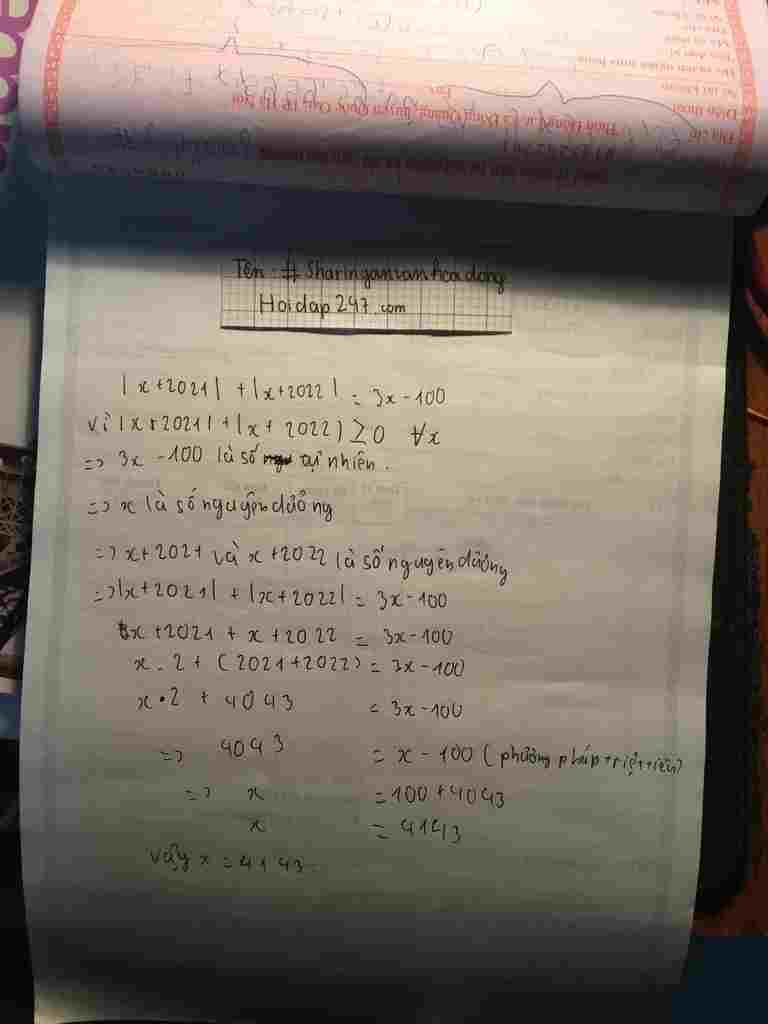 Tên: # Sharinganvanhoadong
Hoidap247.com
|x+2021| + |x+2022| = 3x-100
vì |x+2021| + |x+2022) ≥ 0 ∀x
=> 3x - 100 là số tự nhiên.
=> x là số nguyên dương
=> x+2021 và x+2022 là số nguyên dương
=> |x+2021| + |x+2022| = 3x-100
x+2021 + x+2022 = 3x-100
x . 2 + (2021+2022) = 3x-100
x • 2 + 4043 = 3x-100
=> 4043 = x - 100 (phương pháp triệt tiêu)
=> x = 100+4043
x = 4143
vậy x = 4143.